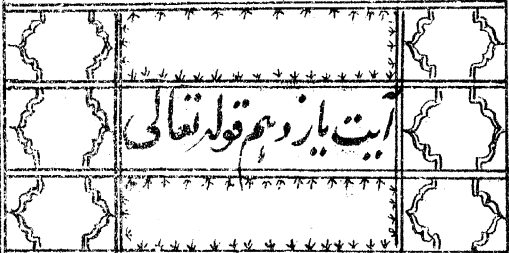 آیت یازدهم قوله تعالی